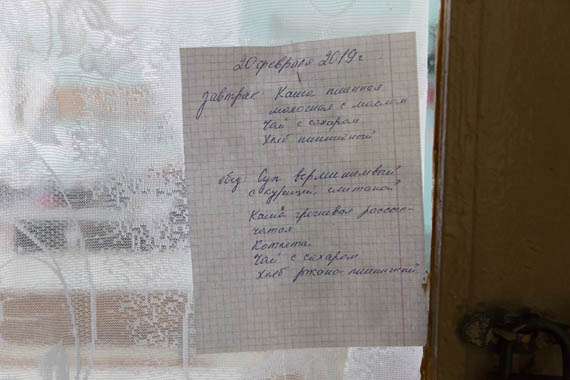 20 февраля 2019 г
Завтрак: Каша пшенная
молочная с маслом
Чай с сахаром
Хлеб пшеничный
обед: Суп вермишелевый
с курицей, сметаной
Каша гречневая рассып-
чатая
Котлета
Чай с сахаром
Хлеб ржано-пшеничный